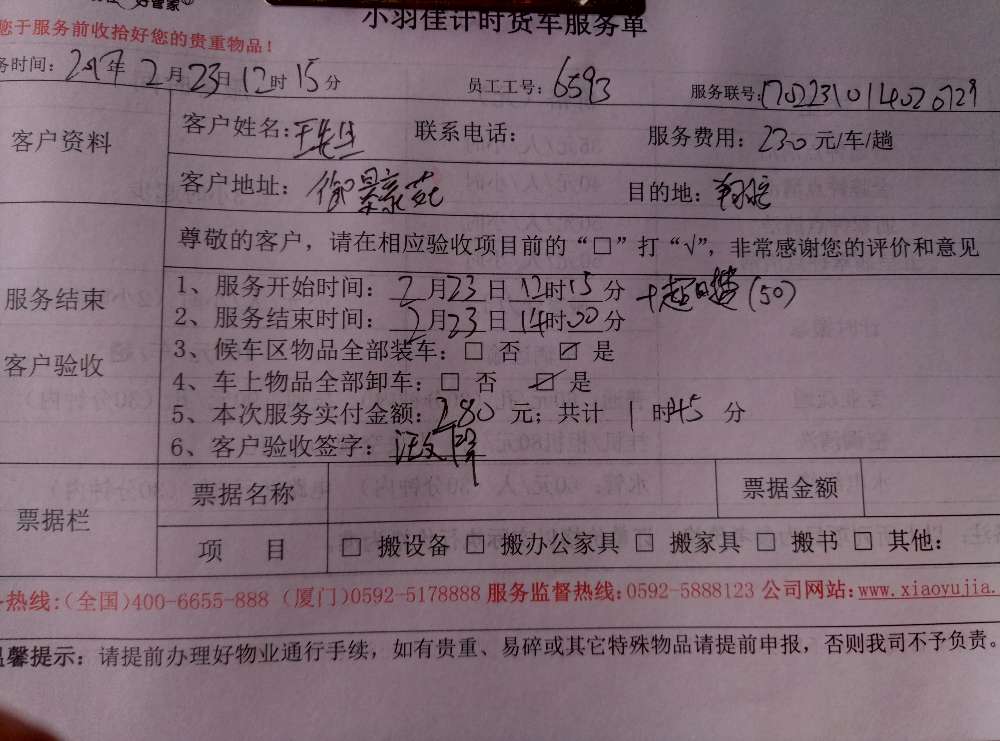 好管家®
小羽佳计时货车服务单
您于服务前收拾好您的贵重物品！
务时间：2017年2月23日12时15分 员工工号：6593 服务联号：1702231014020729
客户资料
客户姓名：王先生 联系电话： 服务费用：230元/车/趟
客户地址：御景家苑 目的地：翔安
尊敬的客户，请在相应验收项目前的“□”打“√”，非常感谢您的评价和意见
服务结束
客户验收
1、服务开始时间：2月23日12时15分 +超时费(50)
2、服务结束时间：2月23日14时00分
3、候车区物品全部装车：□ 否 ☑ 是
4、车上物品全部卸车：□ 否 ☑ 是
5、本次服务实付金额：280元；共计 1时45分
6、客户验收签字：
票据栏
票据名称 票据金额
项 目 □ 搬设备 □ 搬办公家具 □ 搬家具 □ 搬书 □ 其他：
热线:(全国)400-6655-888 (厦门)0592-5178888 服务监督热线:0592-5888123 公司网站:www.xiaoyujia.
温馨提示：请提前办理好物业通行手续，如有贵重、易碎或其它特殊物品请提前申报，否则我司不予负责。